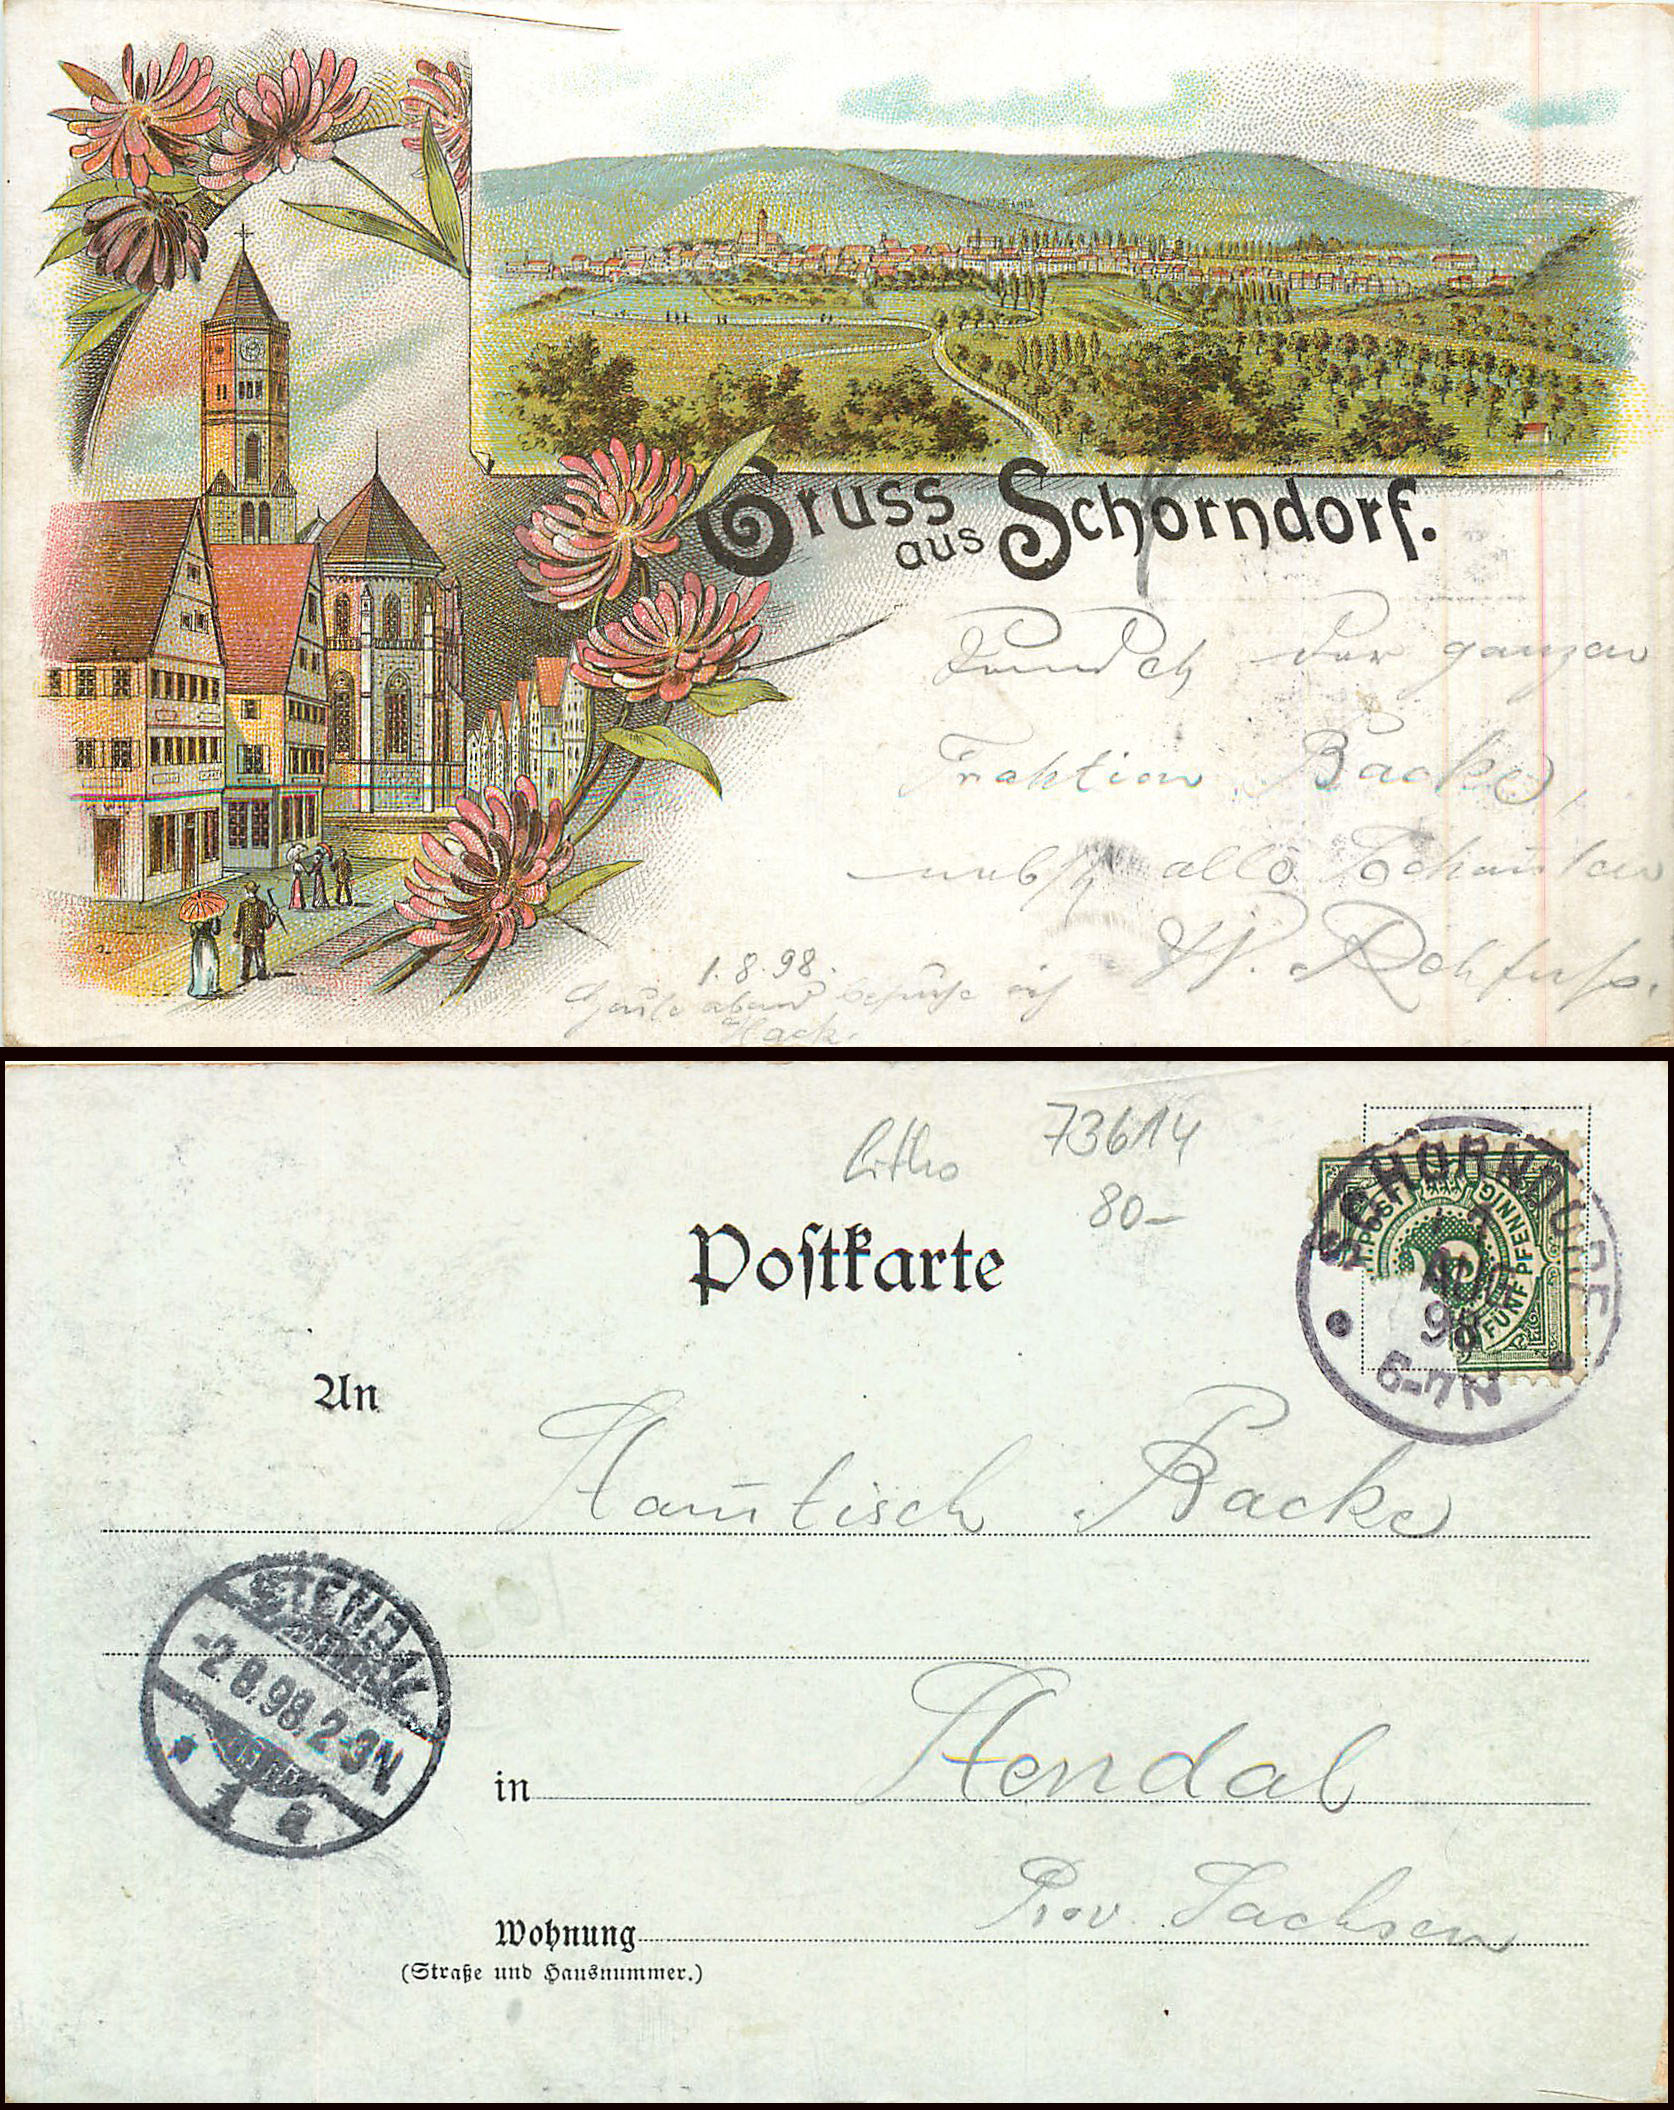 Gruss
aus Schorndorf.
der ganzen
Fraktion Backe,
nebst
1.8.98.
Heute abend besuche ich
Hack.
litho
73614
80-
Poſtkarte
SCHORNDORF
AUG
98
6-7N
POST
FÜNF PFENNIG
5
An
Backe
STENDAL
-2.8.98.2-3N
1 a
in Stendal
Prov. Sachsen
Wohnung
(Straße und Hausnummer.)